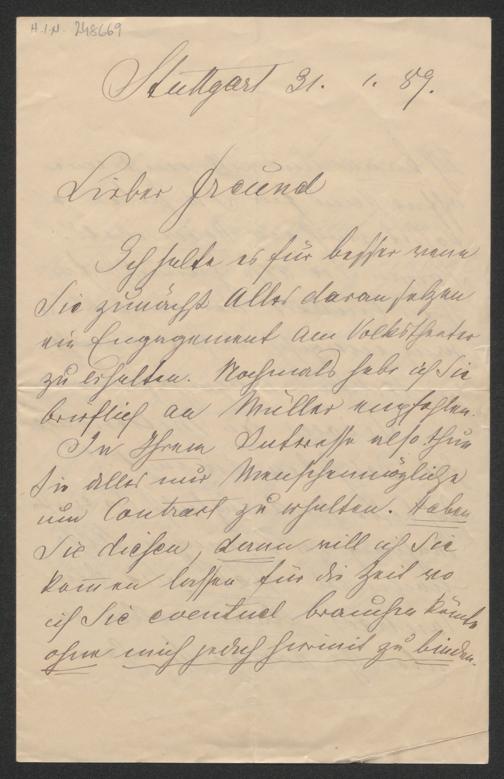 H.I.N. 248669
Stuttgart 31. 1. 89.
Lieber Freund
Ich halte es für besser wenn
Sie zunächst Alles daran setzen
ein Engagement am Volkstheater
zu erhalten. Nochmals habe ich Sie
brieflich an Müller empfohlen.
In Ihrem Interesse also thun
Sie alles nur Menschenmögliche
um Contract zu erhalten. Haben
Sie diesen, dann will ich Sie
kommen lassen für die Zeit wo
ich Sie eventuel brauchen könnte
ohne mich jedoch hiermit zu binden.